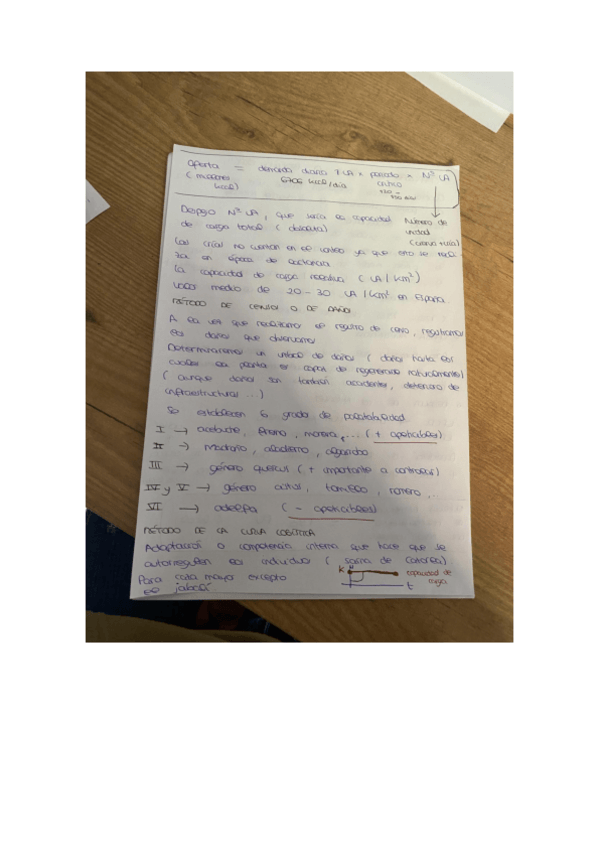 oferta = demanda diaria 1 UA × periodo × Nº UA
(mínima 6706 kcal/día crítico
kcal) 120 -
150 días
Despejo Nº UA, que sería la capacidad Número de
de carga total (absoluta) unidad
(ciervo tulía)
Las crías no cuentan en el conteo ya que esto se reali
za en época de lactancia
La capacidad de carga relativa (UA/km²)
Valor medio de 20-30 UA/km² en España
MÉTODO DE CENSOS O DE DAÑOS
A la vez que realizamos el registro de censo, registramos
los daños que observamos
Determinaremos un umbral de daños (daños hasta los
cuales la planta es capaz de regenerarse naturalmente)
(aunque daños son también accidentes, deterioro de
infraestructuras ...)
Se establecen 6 grados de palatabilidad
I → acebuche, fresno, morera, ... (+ apetecibles)
II → Madroño, aladierno, algarrobo
III → género quercus (+ importante a controlar)
IV y V → género cistus, tomillo, romero, ..
VI → adelfa (- apetecibles)
MÉTODO DE LA CURVA LOGÍSTICA
Adaptación o competencia interna que hace que se
autorregulen los individuos (sarna de Cazorla)
Para caza mayor excepto K N capacidad de
el jabalí. t carga